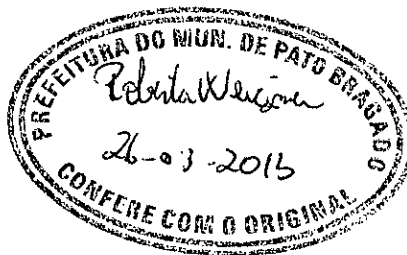 PREFEITURA DO MUN. DE PATO BRAGADO
Roberta
26-03-2015
CONFERE COM O ORIGINAL